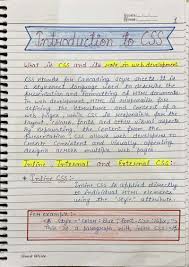 1
Introduction to CSS
What is CSS and its role in web development
CSS stands for Cascading Style sheets it is
a stylesheet language used to describe the
presentation and formatting of HTML documents.
In web development, HTML is responsible for
defining the structure and content of a
web pages while CSS is responsible for the
layout, colors, fonts and other visual aspects.
By separating the content from the
presentation, CSS allows web developers to
create consistent and visually appealing
designs across multiple web pages.
Inline, Internal and External CSS:-
Inline CSS:-
Inline CSS is applied directly
to individual HTML elements
using the style attribute.
For example:-
<p style="color: blue; font-size: 16px;">
This is a paragraph with inline CSS </p>
Good Write